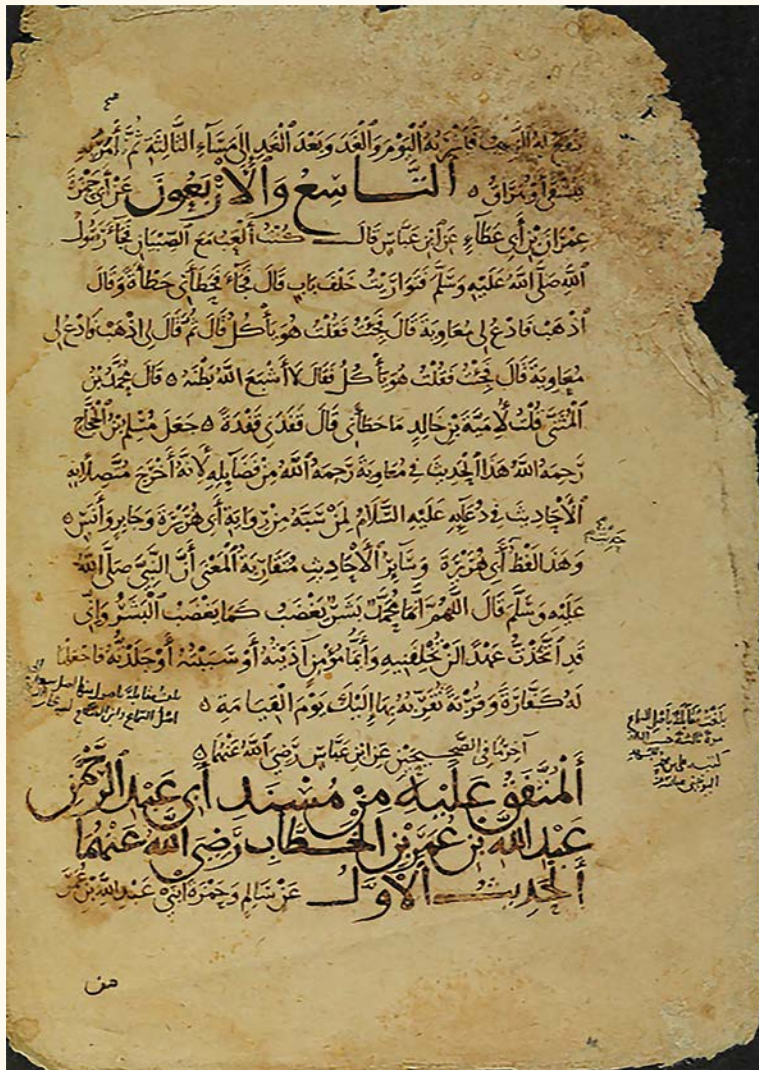 ينقع له الزبيب فيشربه اليوم والغد وبعد الغد إلى مساء الثالثة ثم أمر به
فيسقى أو يهراق ٥ التاسع والأربعون عن أبي حمزة
عمران بن أبي عطاء عن ابن عباس قال كنت ألعب مع الصبيان فجاء رسول
الله صلى الله عليه وسلم فتواريت خلف باب قال فجاء فحطأني حطأة وقال
اذهب فادع لي معاوية قال فجئت فقلت هو يأكل قال ثم قال لي اذهب فادع لي
معاوية قال فجئت فقلت هو يأكل فقال لا أشبع الله بطنه ٥ قال محمد بن
المثنى قلت لأمية بن خالد ما حطأني قال قفدني قفدة ٥ جعل مسلم بن الحجاج
رحمه الله هذا الحديث في معاوية رحمه الله من فضائله لأنه أخرج متصلا به
الأحاديث في دعائه عليه السلام لمن سبه من رواية أبي هريرة وجابر وأنس ٥
وهذا لفظ أبي هريرة وسائر الأحاديث متقاربة المعنى أن النبي صلى الله
عليه وسلم قال اللهم إنما محمد بشر يغضب كما يغضب البشر وإني
قد اتخذت عندك عهدا لن تخلفنيه وأيما مؤمن آذيته أو سببته أو جلدته فاجعلها
له كفارة وقربة تقربه بها إليك يوم القيامة ٥
آخر ما في الصحيحين عن ابن عباس رضي الله عنهما ٥
المتفق عليه من مسند أبي عبد الرحمن
عبد الله بن عمر بن الخطاب رضي الله عنهما
الحديث الأول عن سالم وحمزة ابني عبد الله بن عمر
من